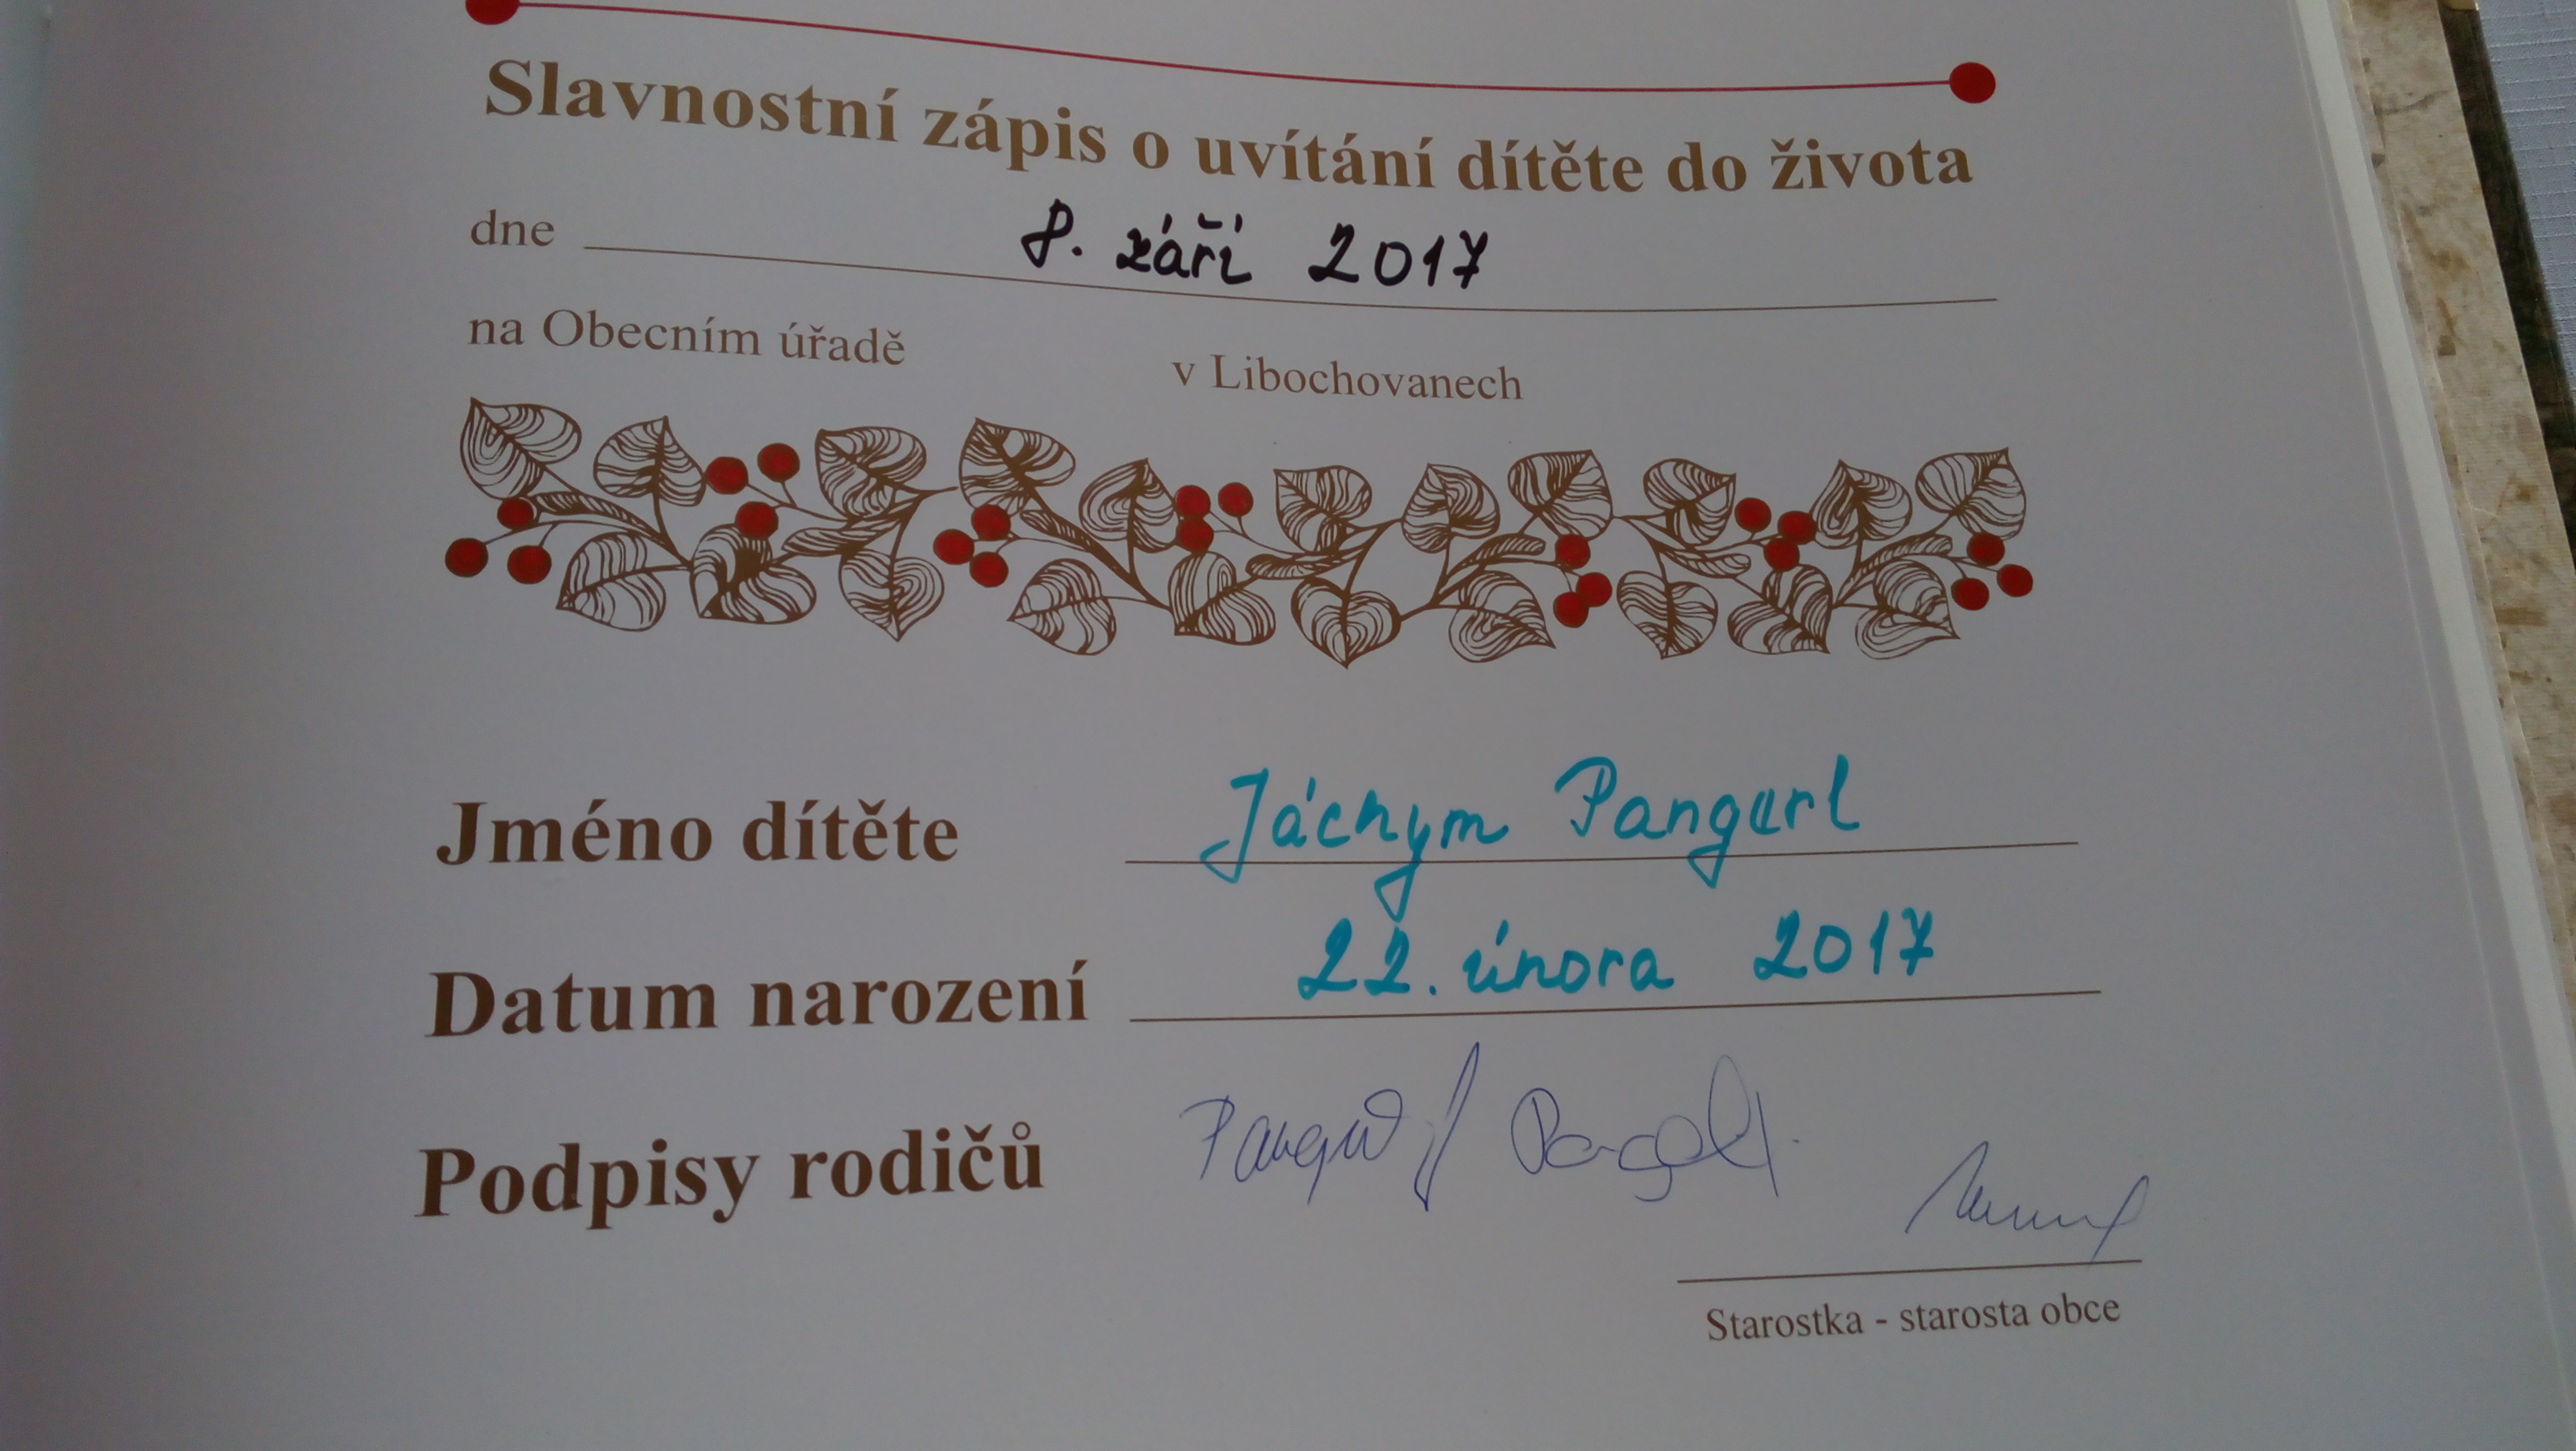 Slavnostní zápis o uvítání dítěte do života
dne 8. září 2017
na Obecním úřadě v Libochovanech
Jméno dítěte Jáchym Pangerl
Datum narození 22. února 2017
Podpisy rodičů
Starostka - starosta obce